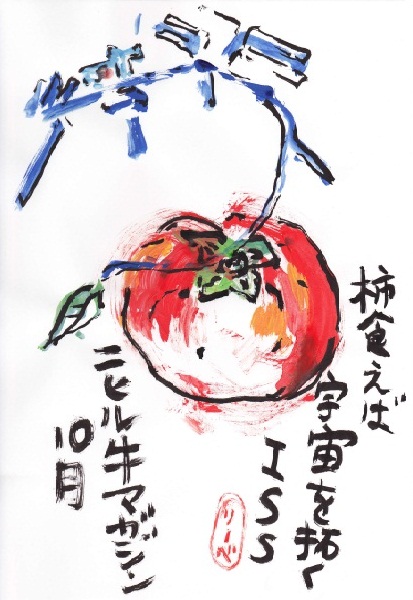 柿食えば
宇宙を拓く
ISS
ニヒル牛マガジン
10月